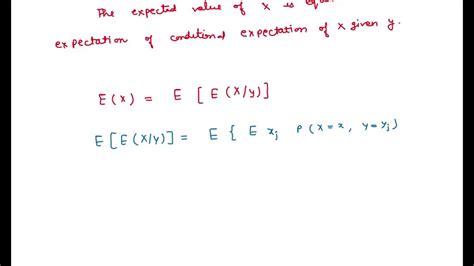 The expected value of x is equal
expectation of conditional expectation of x given y.
E(x) = E [E(X/y)]
E[E(X/y)] = E { E xj P(X=x, y=yj)